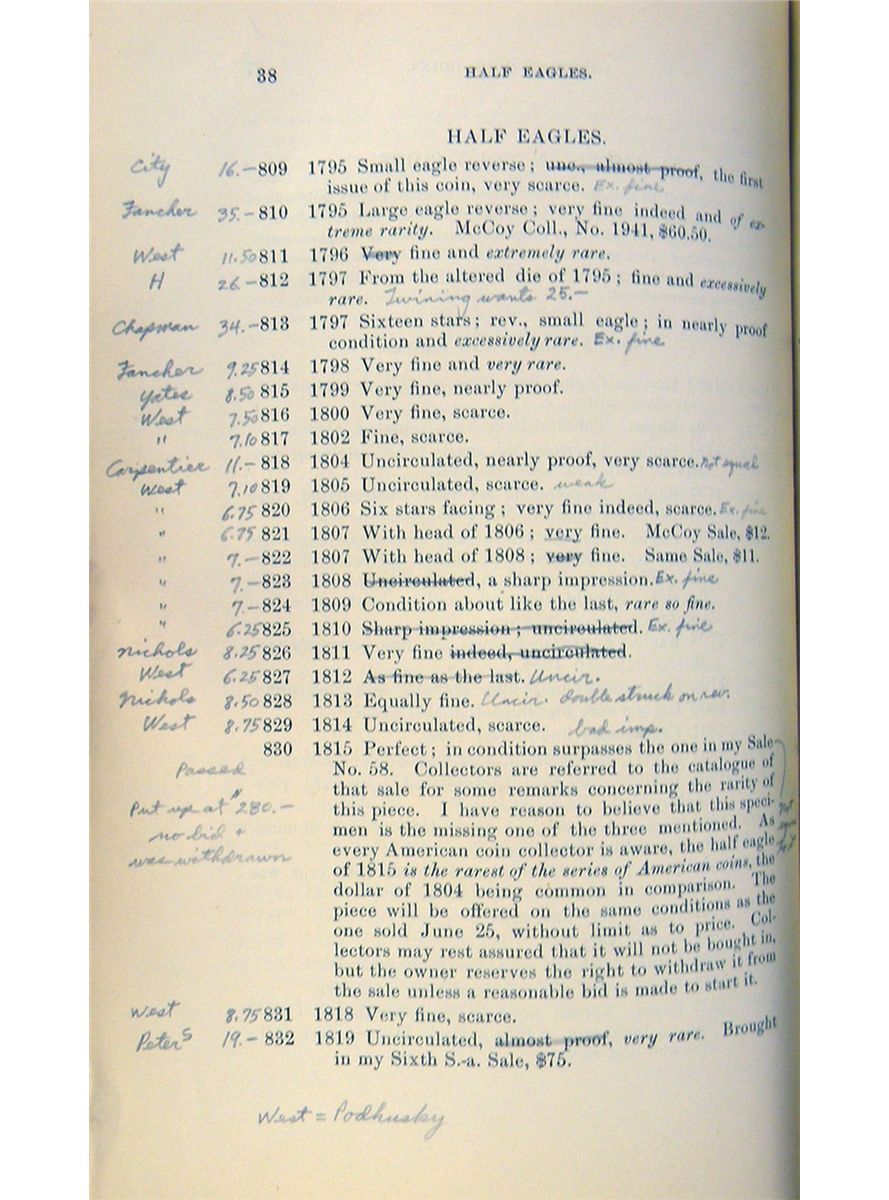 38 HALF EAGLES.
HALF EAGLES.
City 16.– 809 1795 Small eagle reverse ; unc., almost proof, the first
issue of this coin, very scarce. Ex. fine
Fancher 35.– 810 1795 Large eagle reverse ; very fine indeed and of ex-
treme rarity. McCoy Coll., No. 1941, $60.50.
West 11.50 811 1796 Very fine and extremely rare.
H 26.– 812 1797 From the altered die of 1795 ; fine and excessively
rare. Twining wants 25.–
Chapman 34.– 813 1797 Sixteen stars ; rev., small eagle ; in nearly proof
condition and excessively rare. Ex. fine
Fancher 9.25 814 1798 Very fine and very rare.
Yates 8.50 815 1799 Very fine, nearly proof.
West 7.50 816 1800 Very fine, scarce.
" 7.10 817 1802 Fine, scarce.
Carpentier 11.– 818 1804 Uncirculated, nearly proof, very scarce. Not equal
West 7.10 819 1805 Uncirculated, scarce. weak
" 6.75 820 1806 Six stars facing ; very fine indeed, scarce. Ex. fine
" 6.75 821 1807 With head of 1806 ; very fine. McCoy Sale, $12.
" 7.– 822 1807 With head of 1808 ; very fine. Same Sale, $11.
" 7.– 823 1808 Uncirculated, a sharp impression. Ex. fine
" 7.– 824 1809 Condition about like the last, rare so fine.
" 6.25 825 1810 Sharp impression ; uncirculated. Ex. fine
Nichols 8.25 826 1811 Very fine indeed, uncirculated.
West 6.25 827 1812 As fine as the last. Uncir.
Nichols 8.50 828 1813 Equally fine. Uncir. double struck on rev.
West 8.75 829 1814 Uncirculated, scarce. bad imp.
830 1815 Perfect ; in condition surpasses the one in my Sale
Passed No. 58. Collectors are referred to the catalogue of
that sale for some remarks concerning the rarity of
Put up at $280.– this piece. I have reason to believe that this speci-
no bid + men is the missing one of the three mentioned. As
was withdrawn every American coin collector is aware, the half eagle
of 1815 is the rarest of the series of American coins, the
dollar of 1804 being common in comparison. The
piece will be offered on the same conditions as the
one sold June 25, without limit as to price. Col-
lectors may rest assured that it will not be bought in,
but the owner reserves the right to withdraw it from
the sale unless a reasonable bid is made to start it.
West 8.75 831 1818 Very fine, scarce.
Peters 19.– 832 1819 Uncirculated, almost proof, very rare. Brought
in my Sixth S.-a. Sale, $75.
West = Podhusky